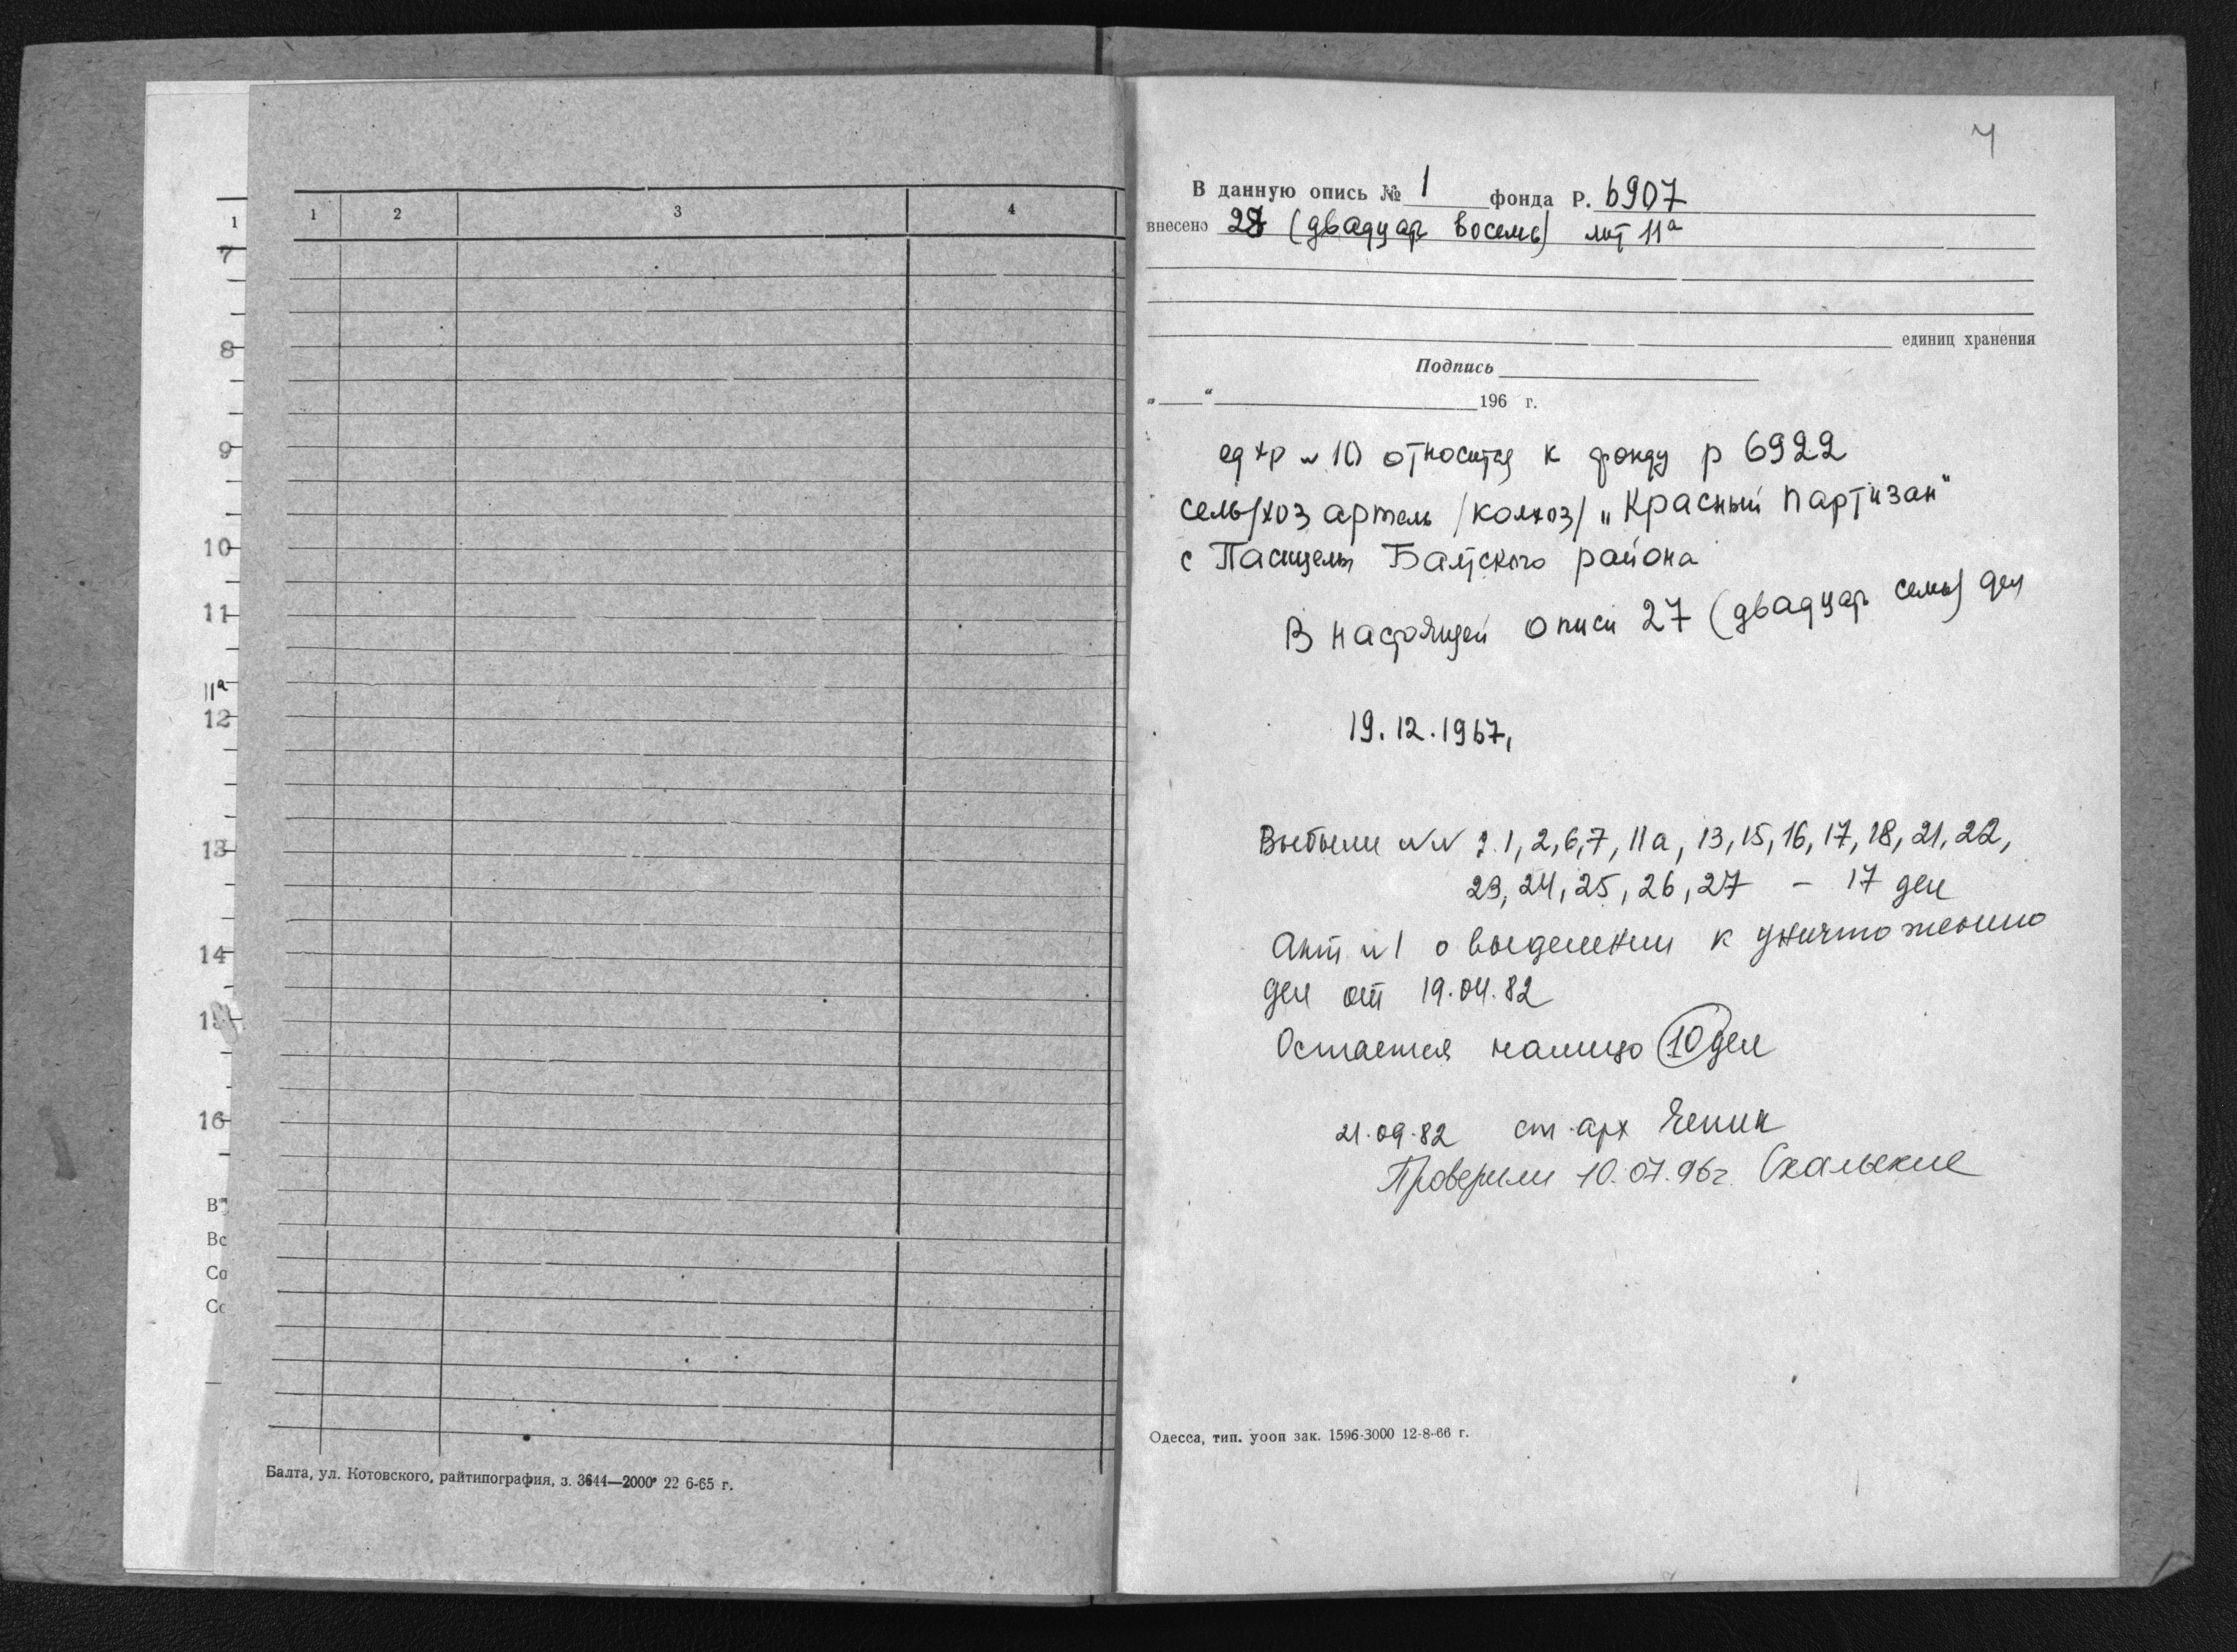 1 2 3 4
1
7
8
9
10
11
11а
12
13
14
15
16
Вс
Со
Со
Балта, ул. Котовского, райтипография, з. 3644—2000 22 6-65 г.
В данную опись № 1 фонда Р. 6907
внесено 28 (двадцать восемь) лит 11а
единиц хранения
Подпись
„ “ 196 г.
ед хр № 10 относится к фонду р 6922
сель/хоз артель /колхоз/ „Красный партизан"
с Пасицелы Балтского района
В настоящей описи 27 (двадцать семь) дел
19.12.1967,
Выбыли №№ 1, 2, 6, 7, 11а, 13, 15, 16, 17, 18, 21, 22,
23, 24, 25, 26, 27 – 17 дел
Акт №1 о выделении к уничтожению
дел от 19.04.82
Остается налицо 10 дел
21.09.82 ст. арх
Проверили 10.07.96г.
Одесса, тип. уооп зак. 1596-3000 12-8-66 г.